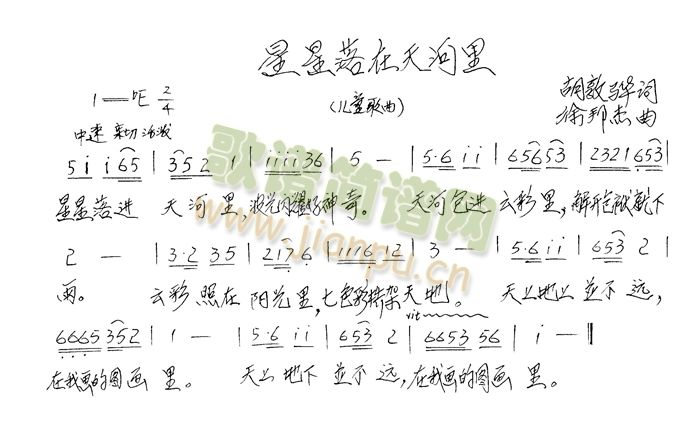 星星落在天河里
(儿童歌曲)
1=♭E 2/4
胡敦骅词
徐邦杰曲
中速 亲切 活泼
5 i i 6 5 | 3 5 2 1 | i i i i 3 6 | 5 - | 5·6 i i | 6 5 6 5 3 | 2 3 2 1 6 5 3 |
星星落进 天河里,波光闪耀好神奇。 天河包进云彩里,解开包袱就下
2 - | 3·2 3 5 | 2 1 7 6 | 1 1 1 6 1 2 | 3 - | 5·6 i i | 6 5 3 2 |
雨。 云彩照在阳光里,七色彩桥架天地。 天上地上並不远,
rit
6 6 6 5 3 5 2 | 1 - | 5·6 i i | 6 5 3 2 | 6 6 5 3 5 6 | i - ‖
在我画的图画里。 天上地下並不远,在我画的图画里。
歌谱简谱网
www.jianpu.cn